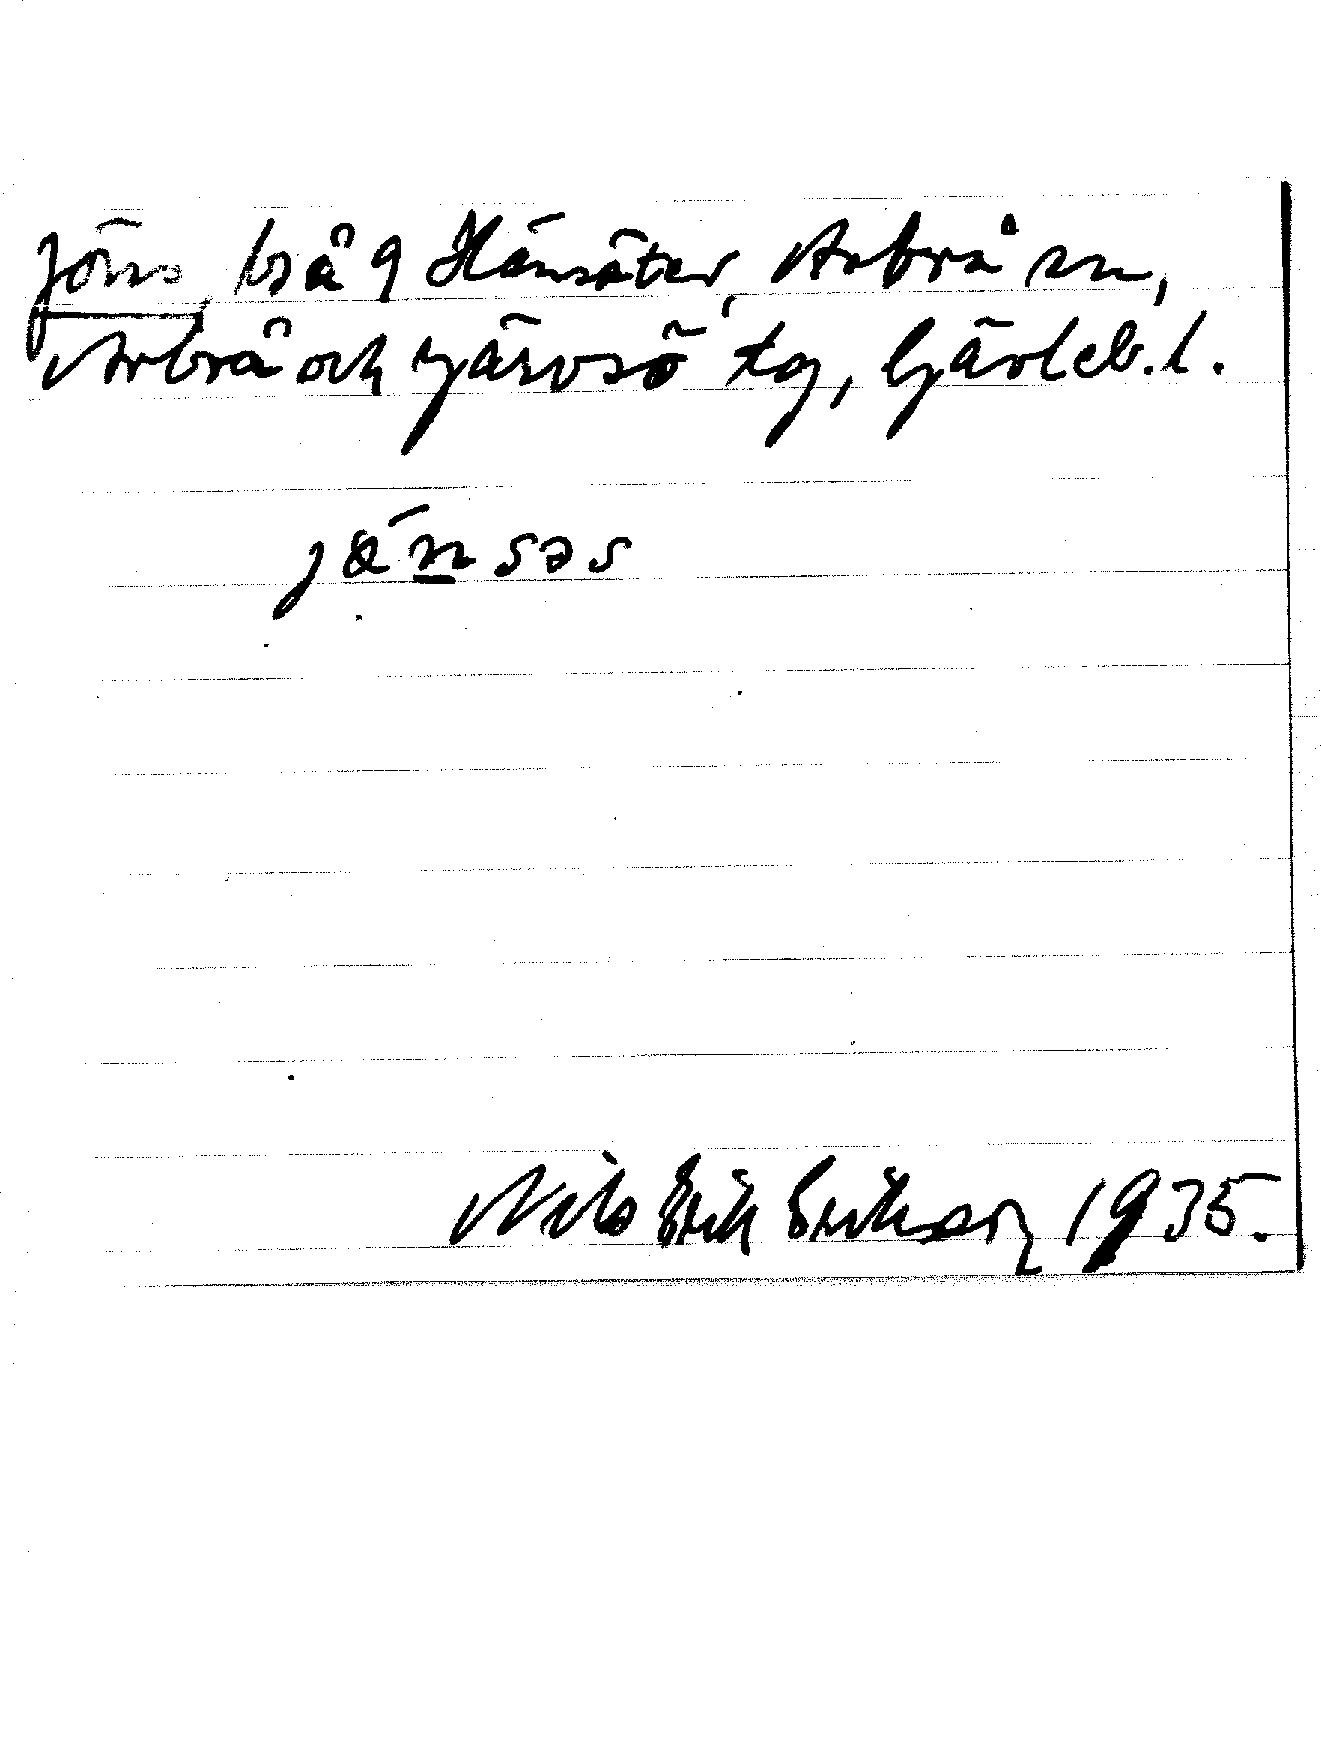 Jöns, bs å 9 Hänsäter, Arbrå sn,
Arbrå och Järvsö tg, Gävleb. l.
jänsəs
Nils Erik Erikson 1935.